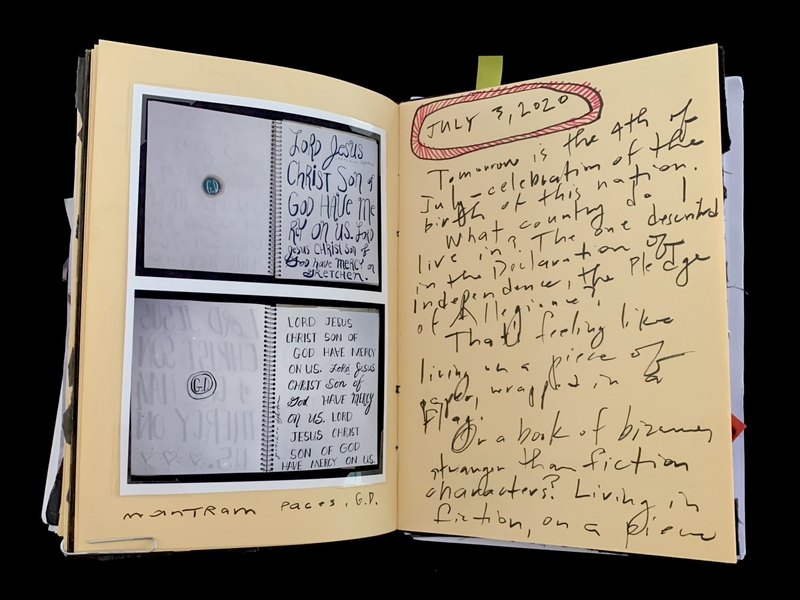 GD
LORD JESUS
CHRIST SON of
GOD HAVE ME
RCY ON US. Lord
Jesus CHRIST SON of
God have MERCY on
GRETCHEN.
GD
LORD JESUS
CHRIST SON OF
GOD HAVE MERCY
ON US. Lord Jesus
CHRIST Son of
God HAVE MERCY
ON US. LORD
JESUS CHRIST
SON OF GOD
HAVE MERCY ON US.
manTRam Pages, G.D.
JULY 3, 2020
Tomorrow is the 4th of
July celebration of the
birth of this nation.
What country do I
live in? The one described
in the Declaration of
Independence, the Pledge
of Allegiance?
That feeling like
living on a piece of
paper, wrapped in a
Flag.
Or a book of bizarre,
stranger than fiction
characters? Living in
fiction, on a piece